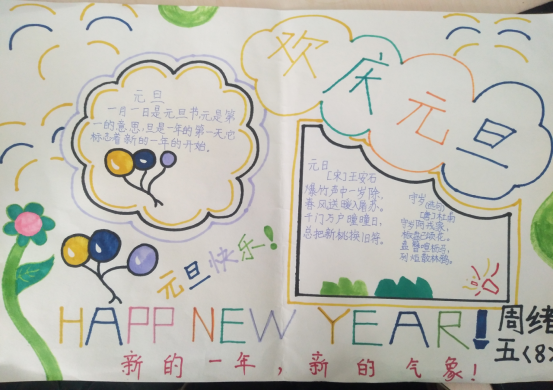 欢庆元旦
元旦
一月一日是元旦节元是第
一的意思,旦是一年的第一天,它
标志着新的一年的开始。
元日
[宋]王安石
爆竹声中一岁除,
春风送暖入屠苏。
千门万户瞳瞳日,
总把新桃换旧符。
守岁
[唐]杜甫
守岁阿戎家,
元旦快乐!
HAPP NEW YEAR!
周绪
五(8)
新的一年,新的气象!